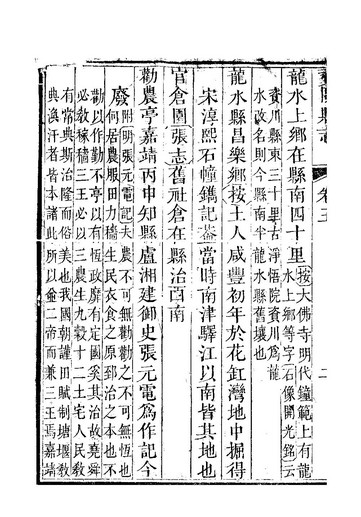 龍水上鄉在縣南四十里按大佛寺明代鐘範上有龍
水上鄉等字石像開光銘云
資川縣東三十里古淨悟院資川爲龍
水改名則今縣南半龍水縣舊壤也
龍水縣昌樂鄉按土人咸豐初年於花缸灣地中掘得
宋淳熙石幢鐫記葢當時南津驛江以南皆其地也
官倉園張志舊社倉在縣治酉南
勸農亭嘉靖丙申知縣盧湘建御史張元電爲作記今
廢附明張元電記夫農不可無勸勸之不可無恆也
何居農服田力穡生民衣食之原郅治之本也不
勸以作勤不亭以有恆政靡有定圖矣其治故堯舜
必敎稼穡三王必以三農生九榖十二土宅人民敎
有常典斯治隆而俗美也我國朝謹田賦制塘堰敎
典漁汗者皆本諸此所以金二帝而兼三王焉嘉靖
資陽縣志
卷三
二